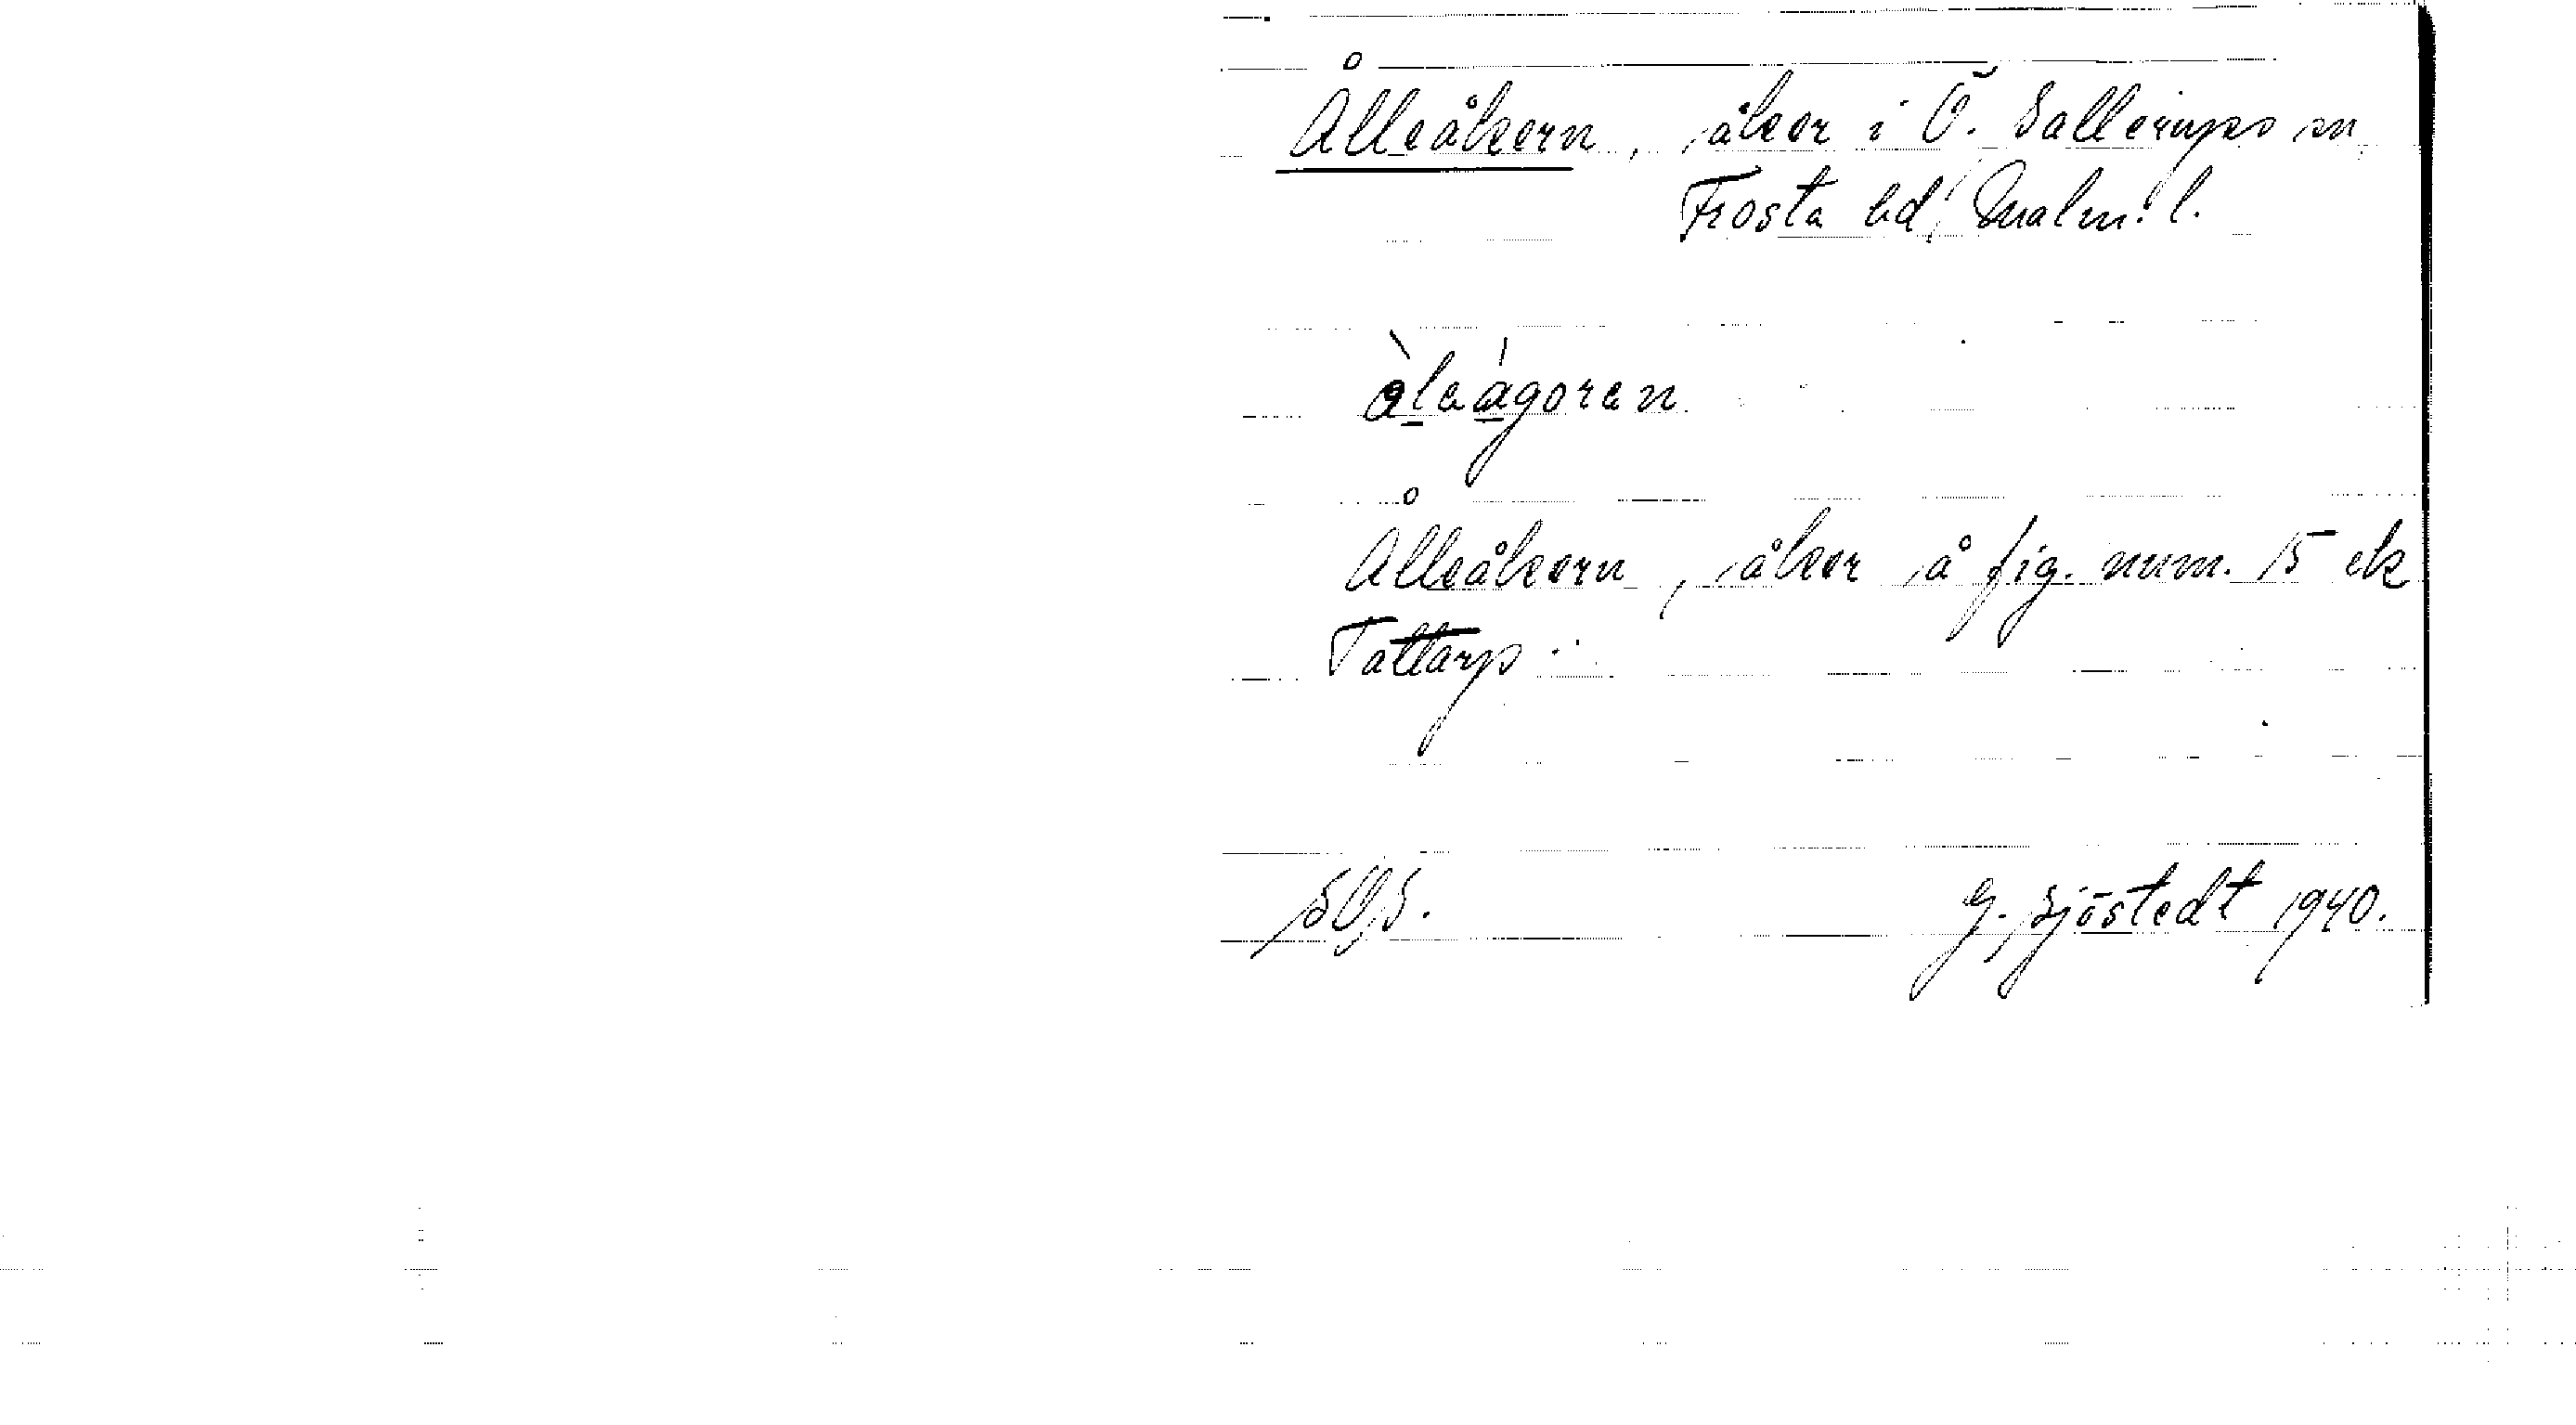 Ålleåkern, åker i Ö. Sallerups sn,
Frosta hd, Malm. l.
àleágoren
Ålleåkern, åker å fig. num. 15 ek
Tattarp.
G. Sjöstedt 1940.